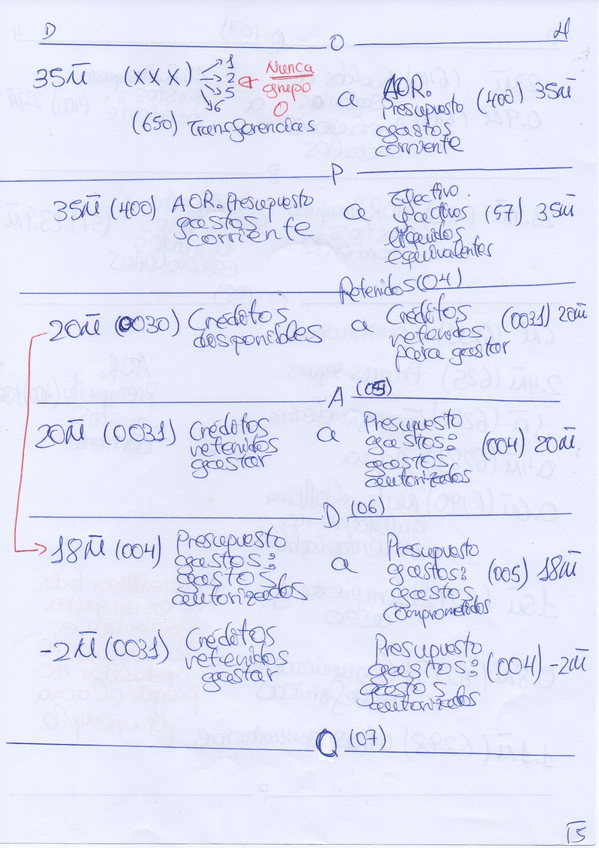 D H
O
35M̄ (XXX) 1 2 5 6 Nunca grupo 0
(650) Transferencias
a AOR. Presupuesto (400) 35M̄
gastos
corriente
P
35M̄ (400) AOR. Presupuesto
gastos
corriente
a Efectivo (57) 35M̄
y activos
líquidos
equivalentes
Retenidos (04)
20M̄ (0030) Créditos
disponibles
a Créditos (0031) 20M̄
retenidos
para gastar
A (05)
20M̄ (0031) Créditos
retenidos
gastar
a Presupuesto
gastos: (004) 20M̄
gastos
autorizados
D (06)
18M̄ (004) Presupuesto
gastos:
gastos
autorizados
a Presupuesto
gastos: (005) 18M̄
gastos
comprometidos
-2M̄ (0031) Créditos
retenidos
gastar
Presupuesto
gastos: (004) -2M̄
gastos
autorizados
O (07)
15